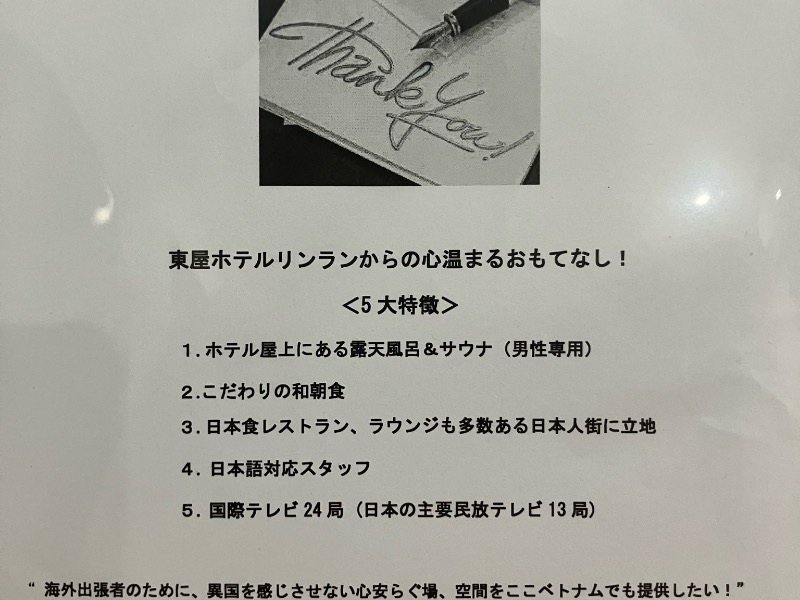 Thank You!
東屋ホテルリンランからの心温まるおもてなし！
＜5大特徴＞
１.ホテル屋上にある露天風呂＆サウナ（男性専用）
２.こだわりの和朝食
３.日本食レストラン、ラウンジも多数ある日本人街に立地
４. 日本語対応スタッフ
５. 国際テレビ24局（日本の主要民放テレビ13局）
“ 海外出張者のために、異国を感じさせない心安らぐ場、空間をここベトナムでも提供したい！”